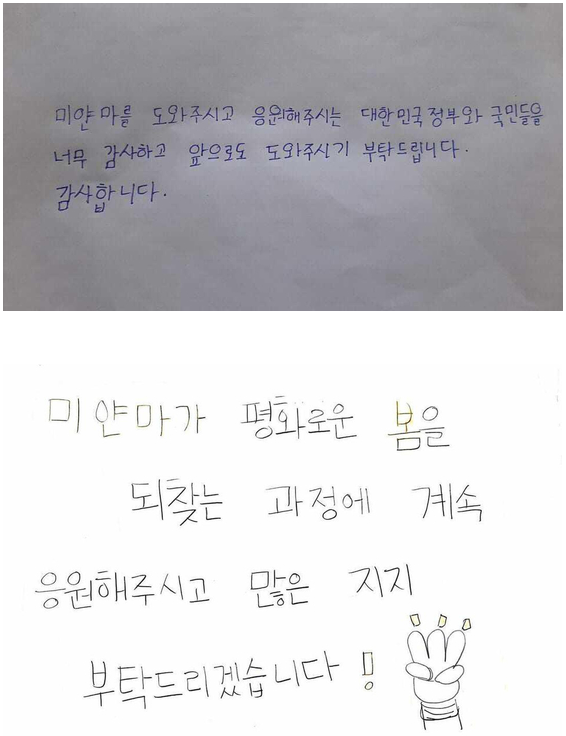 미얀마를 도와주시고 응원해주시는 대한민국 정부와 국민들을
너무 감사하고 앞으로도 도와주시기 부탁드립니다.
감사합니다.
미얀마가 평화로운 봄을
되찾는 과정에 계속
응원해주시고 많은 지지
부탁드리겠습니다!